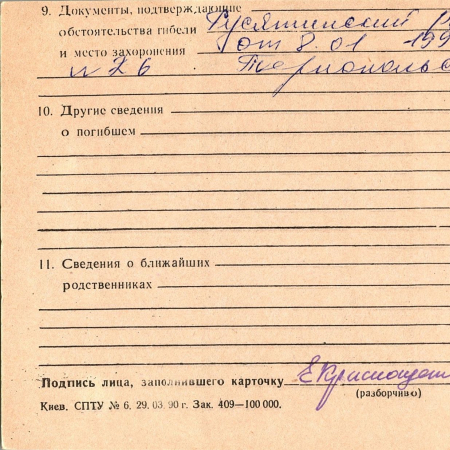 9. Документы, подтверждающие Гусятинский
обстоятельства гибели от 8.01 -199
и место захоронения
н 76
10. Другие сведения
о погибшем
11. Сведения о ближайших
родственниках
Подпись лица, заполнившего карточку
(разборчиво)
Киев. СПТУ № 6. 29. 03. 90 г. Зак. 409—100 000.